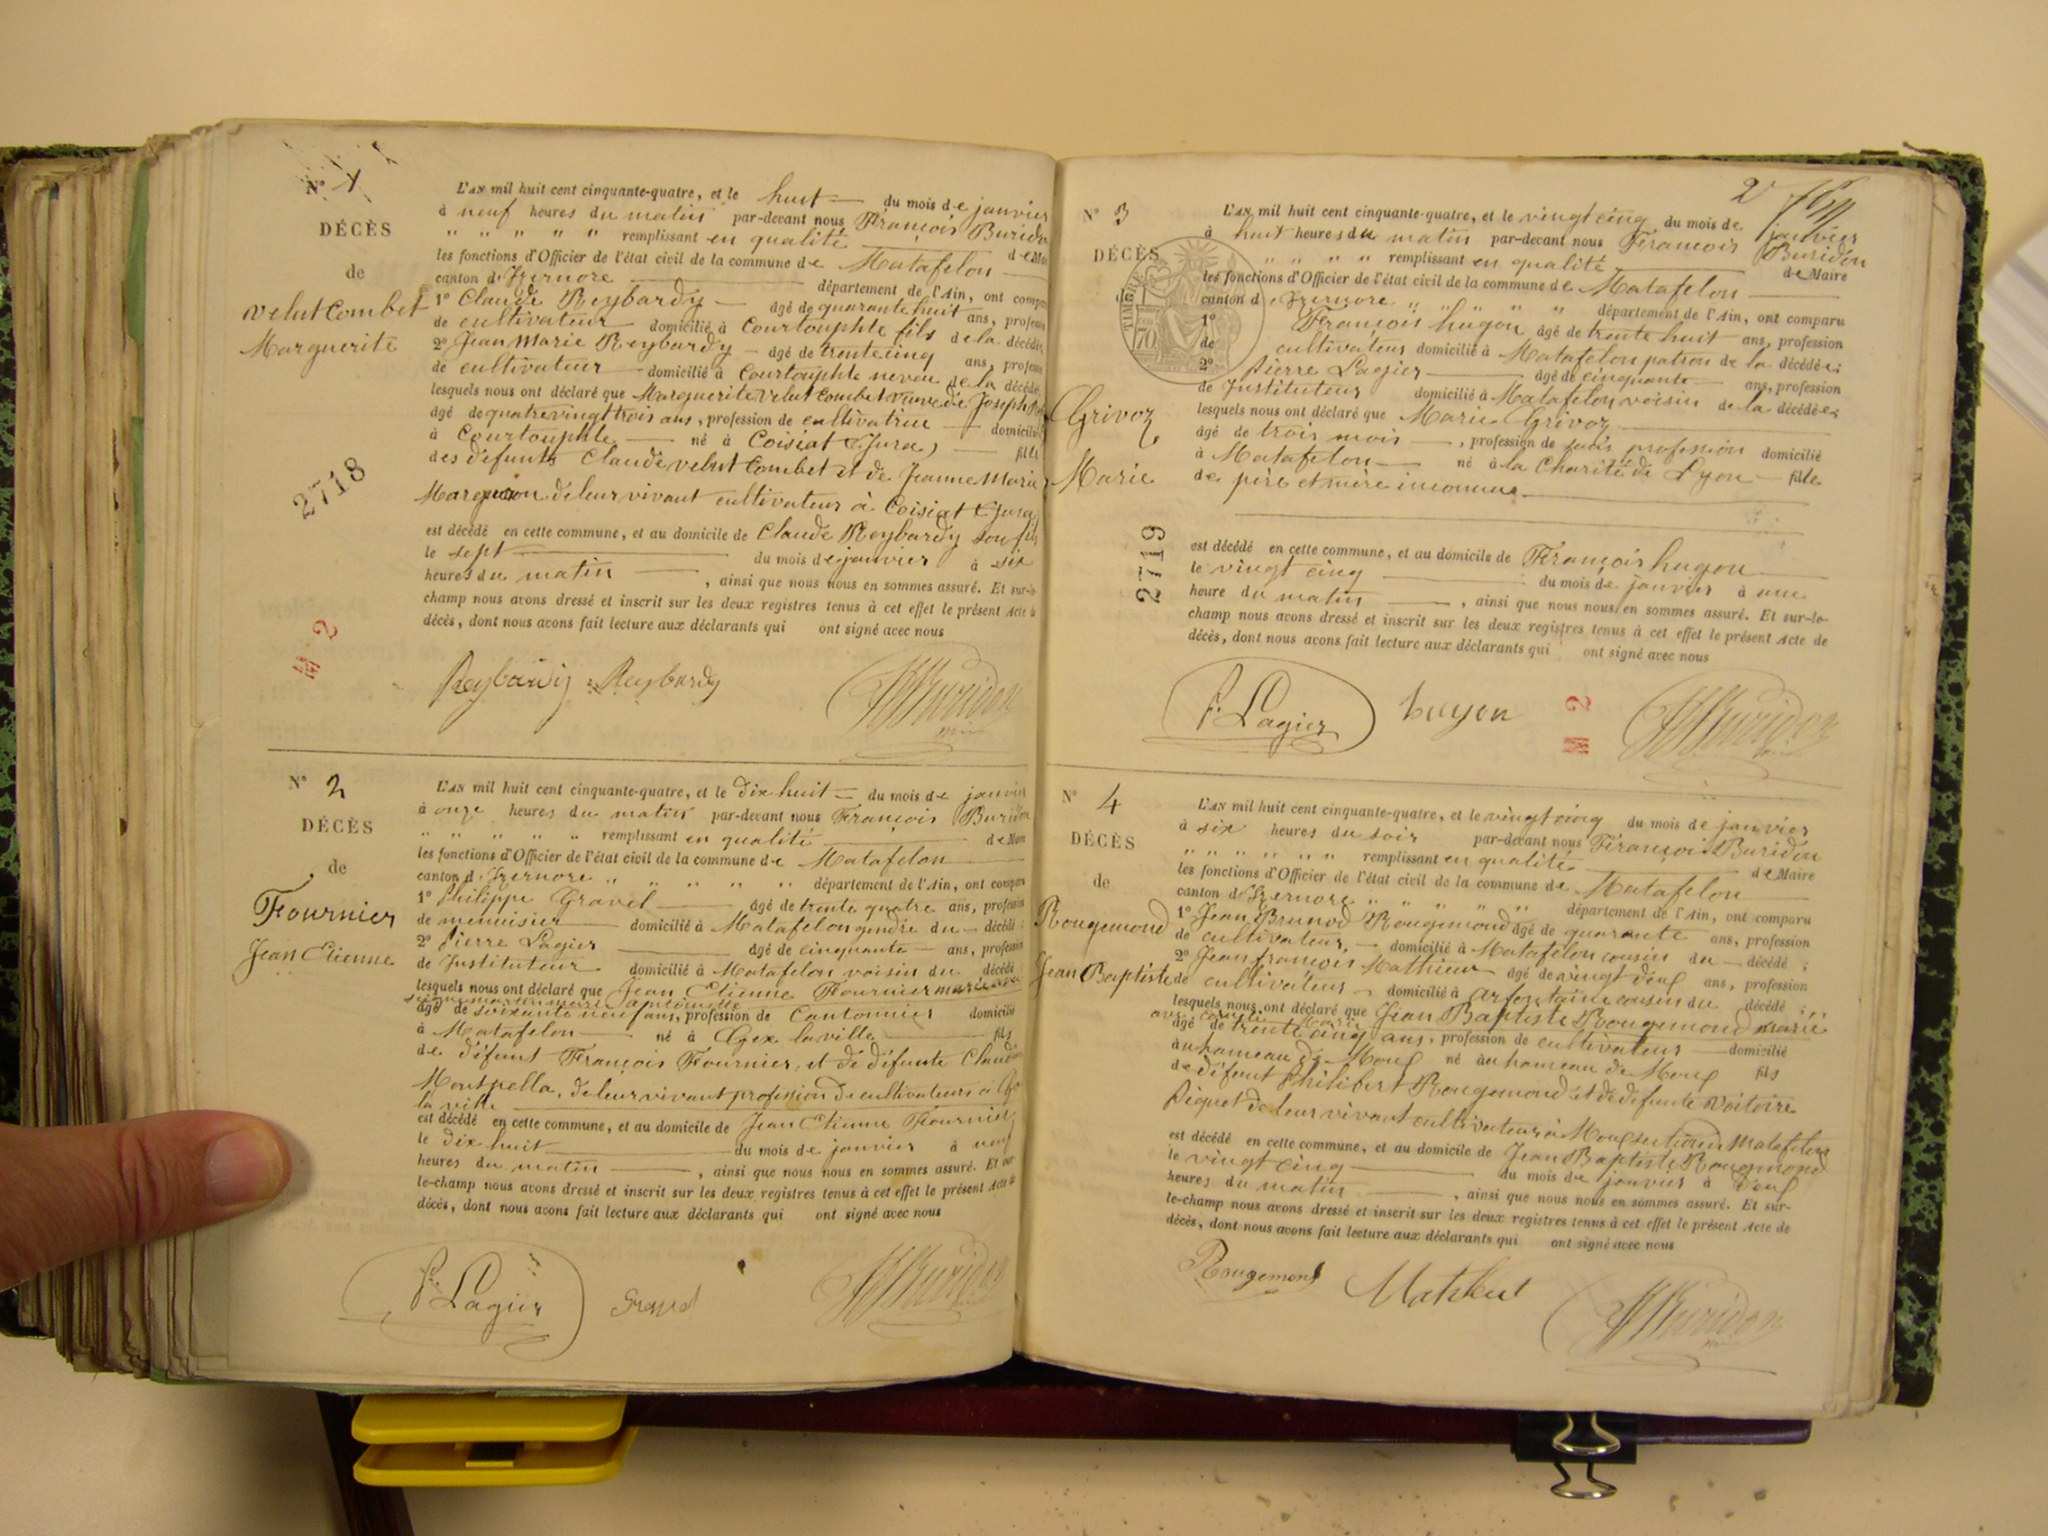 N° 1
DÉCÈS
de
Velut Combet
Marguerite
2718
L'AN mil huit cent cinquante-quatre, et le huit du mois de janvier
à neuf heures du matin par-devant nous François Buridon
" " " " " remplissant en qualité de Mai
les fonctions d'Officier de l'état civil de la commune de Matafelon
canton d'Izernore département de l'Ain, ont compar
1° Claude Reybardy âgé de quarante huit ans, profession
de cultivateur domicilié à Courtouphle fils de la décédée,
2° Jean Marie Reybardy âgé de trente cinq ans, profession
de cultivateur domicilié à Courtouphle neveu de la décédée,
lesquels nous ont déclaré que Marguerite Velut Combet veuve de Joseph
âgé de quatre vingt trois ans, profession de cultivatrice domicilié
à Courtouphle né à Coisiat (Jura) fille
des défunts Claude Velut Combet et de Jeanne Marie
de leur vivant cultivateurs à Coisiat (Jura)
est décédé en cette commune, et au domicile de Claude Reybardy son fils
le sept du mois de janvier à six
heures du matin , ainsi que nous nous en sommes assuré. Et sur-le-
champ nous avons dressé et inscrit sur les deux registres tenus à cet effet le présent Acte de
décès, dont nous avons fait lecture aux déclarants qui ont signé avec nous
Reybardy Reybardy Buridon
N° 2
DÉCÈS
de
Fournier
Jean Etienne
L'AN mil huit cent cinquante-quatre, et le dix huit du mois de janvier
à onze heures du matin par-devant nous François Buridon
" " " " " remplissant en qualité de Mai
les fonctions d'Officier de l'état civil de la commune de Matafelon
canton d'Izernore " " " " " département de l'Ain, ont comparu
1° Philippe Gravel âgé de trente quatre ans, profession
de menuisier domicilié à Matafelon gendre du décédé ;
2° Pierre Lagier âgé de cinquante ans, profession
de Instituteur domicilié à Matafelon voisin du décédé
lesquels nous ont déclaré que Jean Etienne Fournier
âgé de soixante neuf ans, profession de Cantonnier domicilié
à Matafelon né à Gex la ville fils
de défunt François Fournier, et de défunte Claudine
Montpella, de leur vivant profession de cultivateurs à Gex
la ville
est décédé en cette commune, et au domicile de Jean Etienne Fournier
le dix huit du mois de janvier à neuf
heures du matin , ainsi que nous nous en sommes assuré. Et sur-
le-champ nous avons dressé et inscrit sur les deux registres tenus à cet effet le présent Acte de
décès, dont nous avons fait lecture aux déclarants qui ont signé avec nous
P. Lagier Gravel Buridon
2
N° 3
DÉCÈS
Grivoz
Marie
2719
L'AN mil huit cent cinquante-quatre, et le vingt cinq du mois de janvier
à huit heures du matin par-devant nous François Buridon
" " " " remplissant en qualité de Maire
les fonctions d'Officier de l'état civil de la commune de Matafelon
canton d'Izernore " " " " département de l'Ain, ont comparu
1° François hugon âgé de trente huit ans, profession
de cultivateur domicilié à Matafelon patron de la décédée ;
2° Pierre Lagier âgé de cinquante ans, profession
de Instituteur domicilié à Matafelon voisin de la décédée ;
lesquels nous ont déclaré que Marie Grivoz
âgé de trois mois , profession de sans profession domicilié
à Matafelon né à la Charité de Lyon fille
de père et mère inconnus
est décédé en cette commune, et au domicile de François hugon
le vingt cinq du mois de janvier à une
heure du matin , ainsi que nous nous en sommes assuré. Et sur-le-
champ nous avons dressé et inscrit sur les deux registres tenus à cet effet le présent Acte de
décès, dont nous avons fait lecture aux déclarants qui ont signé avec nous
P. Lagier hugon Buridon
N° 4
DÉCÈS
de
Rougemond
Jean Baptiste
L'AN mil huit cent cinquante-quatre, et le vingt cinq du mois de janvier
à six heures du soir par-devant nous François Buridon
" " " " " " remplissant en qualité de Maire
les fonctions d'Officier de l'état civil de la commune de Matafelon
canton d'Izernore " " " " " département de l'Ain, ont comparu
1° Jean Brunod Rougemond âgé de quarante ans, profession
de cultivateur, domicilié à Matafelon cousin du décédé ;
2° Jean François Mathieu âgé de vingt deuf ans, profession
de cultivateur domicilié à arfontaine cousin du décédé ;
lesquels nous ont déclaré que Jean Baptiste Rougemond marié
âgé de trente cinq ans, profession de cultivateur domicilié
au hameau de Mouf né au hameau de Mouf fils
de défunt Philibert Rougemond et de défunte Voitoire
Piquet de leur vivant cultivateurs à Mouf section de Matafelon
est décédé en cette commune, et au domicile de Jean Baptiste Rougemond
le vingt cinq du mois de janvier à deuf
heures du matin , ainsi que nous nous en sommes assuré. Et sur-
le-champ nous avons dressé et inscrit sur les deux registres tenus à cet effet le présent Acte de
décès, dont nous avons fait lecture aux déclarants qui ont signé avec nous
Rougemond Mathieu Buridon